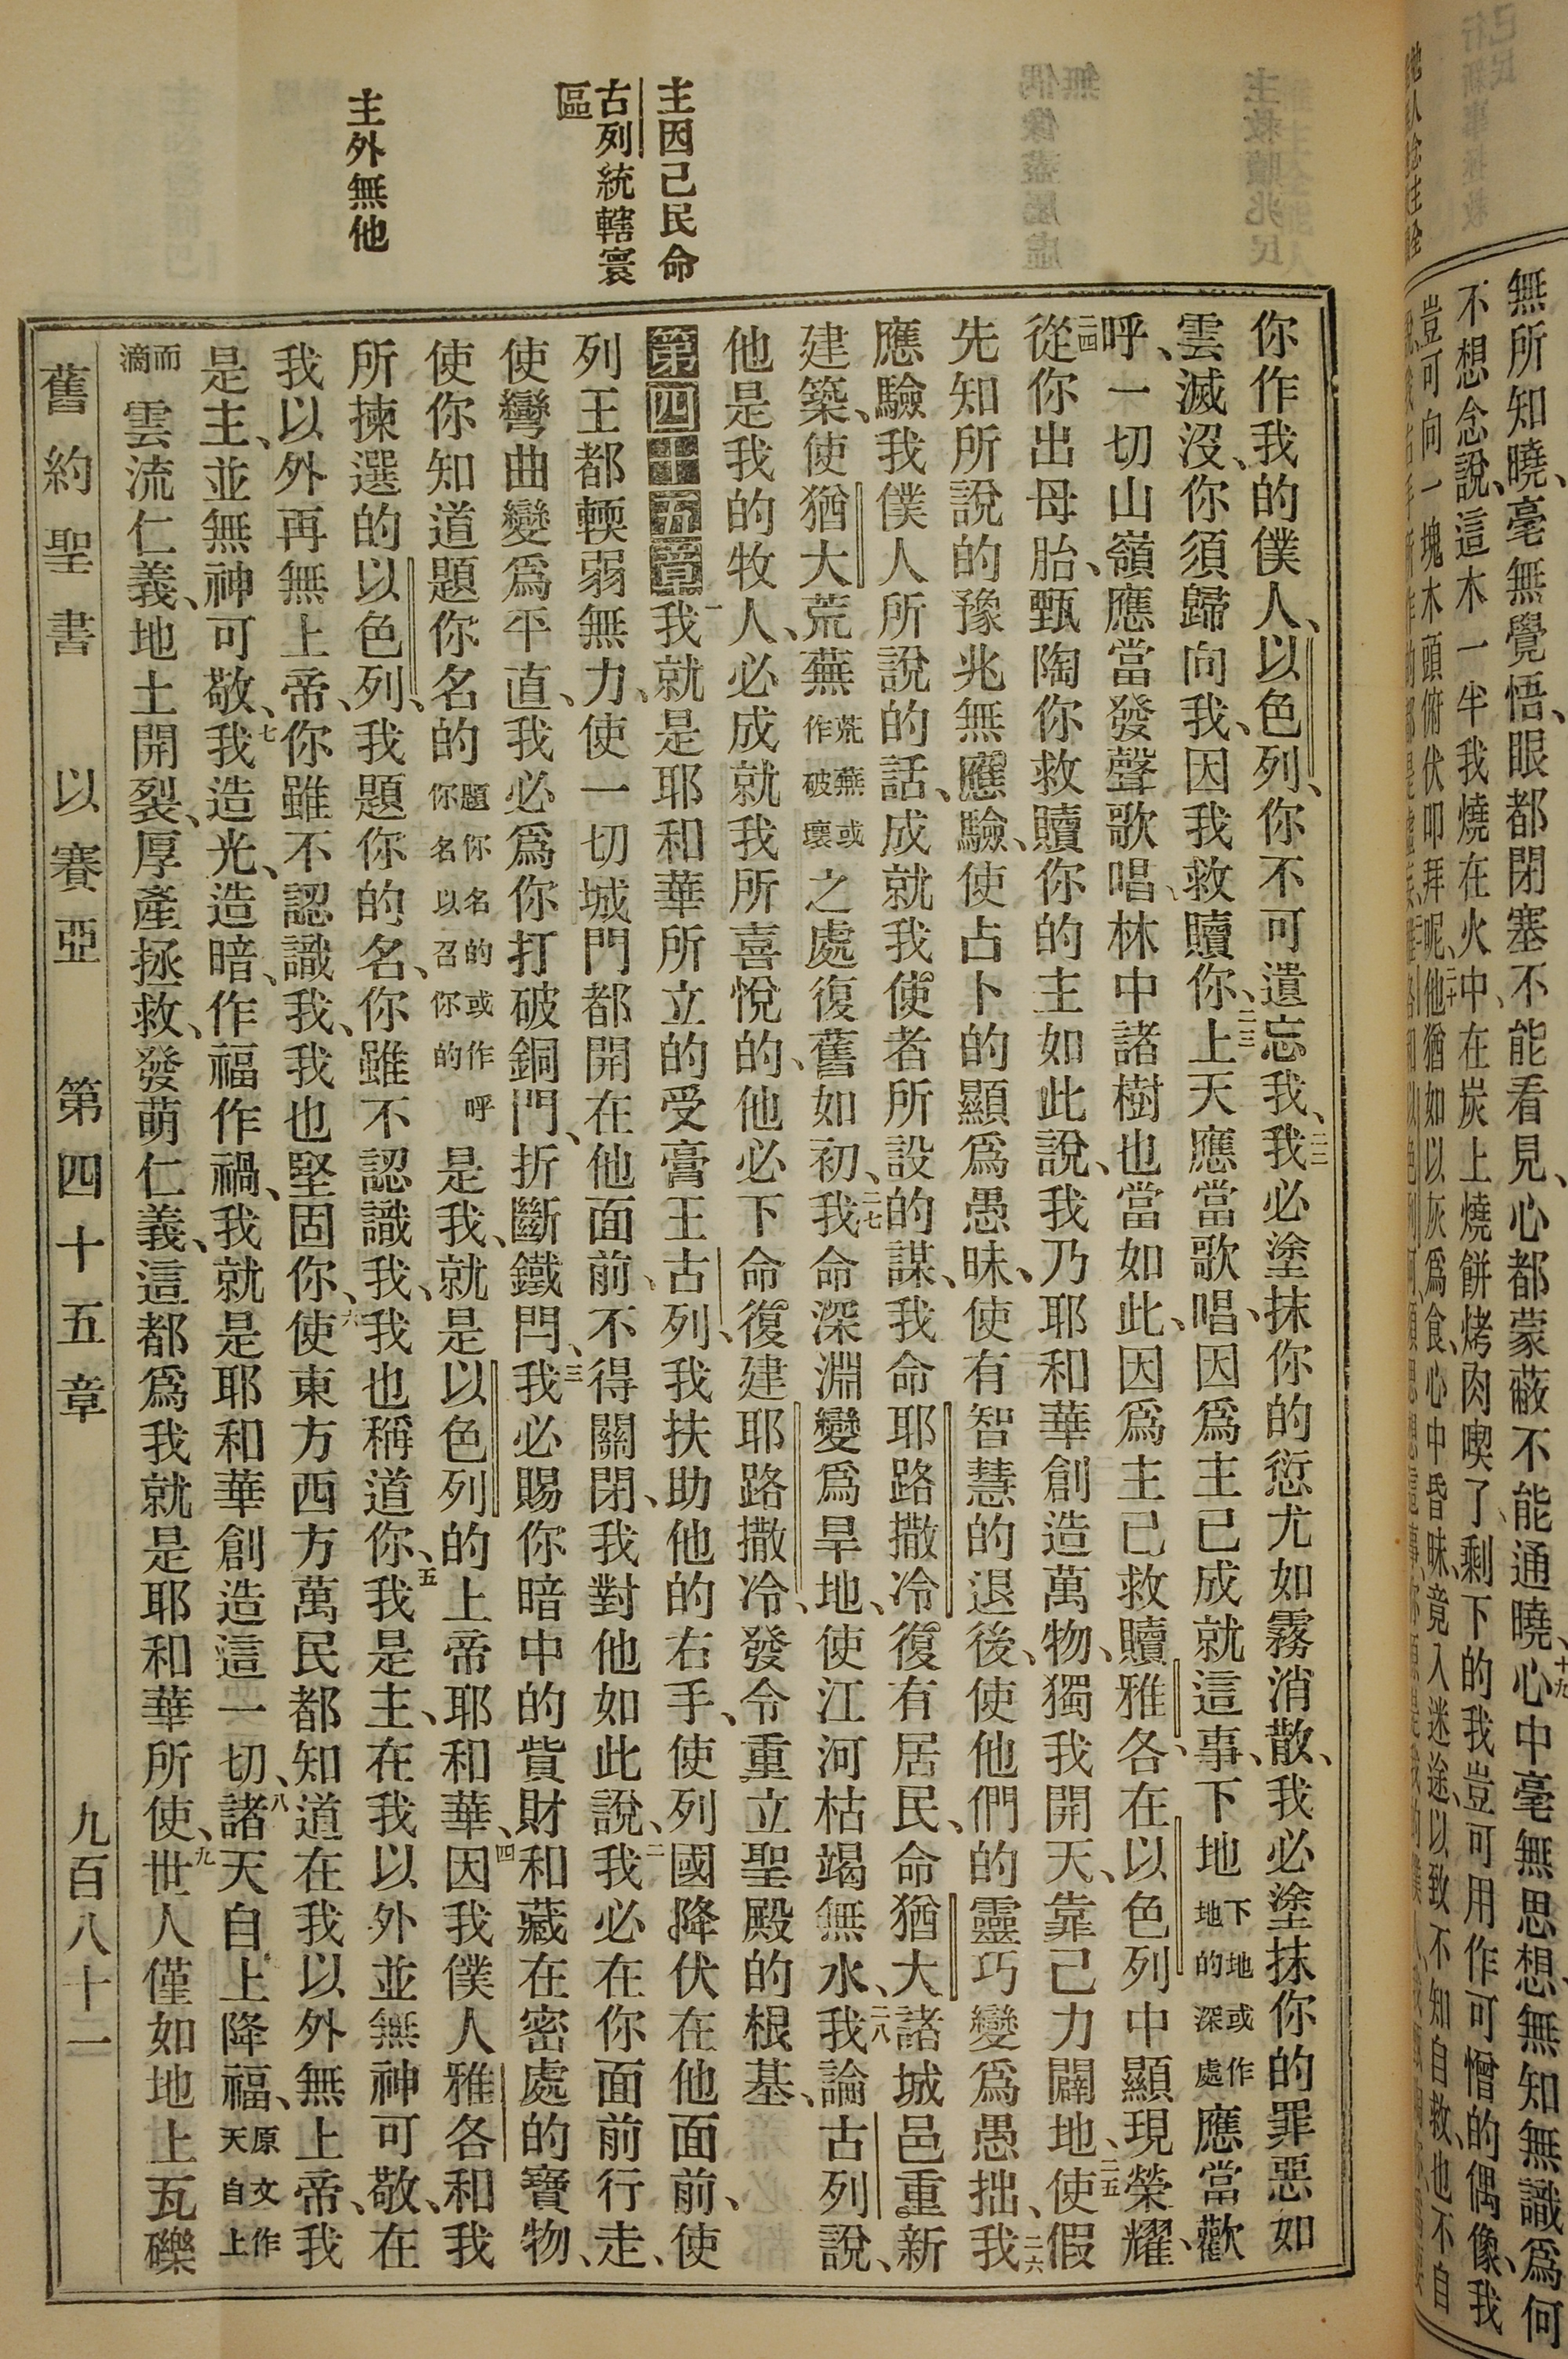 無所知曉、毫無覺悟、眼都閉塞不能看見、心都蒙蔽不能通曉、十九心中毫無思想、無知無識、爲何
不想念說、這木一半我燒在火中、在炭上燒餅烤肉喫了、剩下的我豈可用作可憎的偶像、我
豈可向一塊木頭俯伏叩拜呢、二十他猶如以灰爲食、心中昏昧、竟入迷途、以致不知自救、也不自
主因己民命
古列統轄寰
區
主外無他
你作我的僕人、以色列、你不可遺忘我、二二我必塗抹你的愆尤如霧消散、我必塗抹你的罪惡如
雲滅沒、你須歸向我、因我救贖你、二三上天應當歌唱、因爲主已成就這事、下地下地或作地的深處應當歡
呼、一切山嶺應當發聲歌唱、林中諸樹也當如此、因爲主已救贖雅各、在以色列中顯現榮耀、
二四從你出母胎、甄陶你救贖你的主如此說、我乃耶和華創造萬物、獨我開天、靠己力闢地、二五使假
先知所說的豫兆無應驗、使占卜的顯爲愚昧、使有智慧的退後、使他們的靈巧變爲愚拙、二六我
應驗我僕人所說的話、成就我使者所設的謀、我命耶路撒冷復有居民、命猶大諸城邑重新
建築、使猶大荒蕪荒蕪或作破壞之處復舊如初、二七我命深淵變爲旱地、使江河枯竭無水、二八我論古列說、
他是我的牧人、必成就我所喜悅的、他必下命復建耶路撒冷、發令重立聖殿的根基、
第四十五章一我就是耶和華所立的受膏王古列、我扶助他的右手、使列國降伏在他面前、使
列王都輭弱無力、使一切城門都開在他面前、不得關閉、我對他如此說、二我必在你面前行走、
使彎曲變爲平直、我必爲你打破銅門、折斷鐵閂、三我必賜你暗中的貲財、和藏在密處的寶物、
使你知道題你名的題你名的或作呼你名以召你的是我、就是以色列的上帝耶和華、四因我僕人雅各和我
所揀選的以色列、我題你的名、你雖不認識我、我也稱道你、五我是主、在我以外並無神可敬、在
我以外再無上帝、你雖不認識我、我也堅固你、六使東方西方萬民都知道在我以外無上帝、我
是主、並無神可敬、七我造光、造暗、作福作禍、我就是耶和華創造這一切、八諸天自上降福、原文作天自上
而滴雲流仁義、地土開裂、厚產拯救、發萌仁義、這都爲我就是耶和華所使、九世人僅如地上瓦礫
舊約聖書 以賽亞 第四十五章 九百八十一